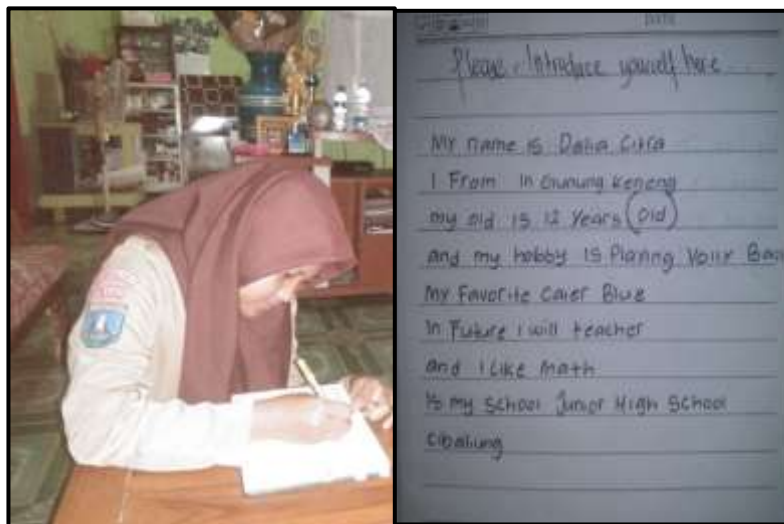 DATE
Please, Introduce yourself here
My name is Dalia Citra
I From In Gunung Keneng
my old is 12 Years Old
and my hobby is Playing Volly Bac
My Favorite Coler Blue
In Future I will teacher
and I Like math
my School Junior High School
Cibaliung